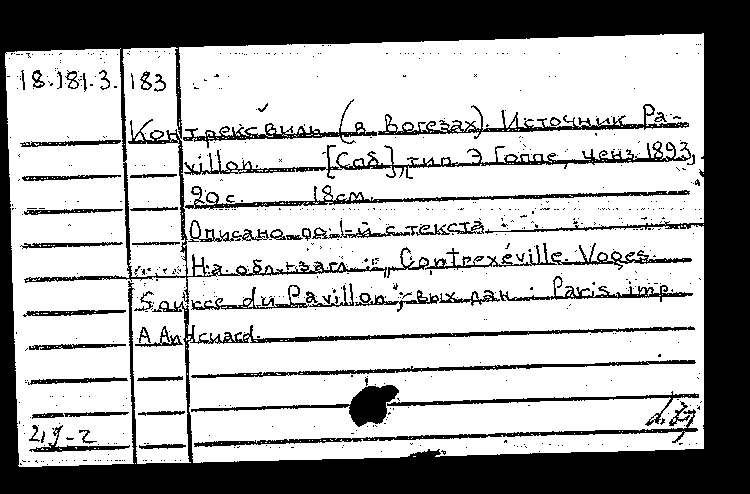 18.181.3. 183
Контрексвиль (в Вогезах). Источник Pa-
villon. [Спб], тип. Э Гоппе, ценз. 1893,
20 с. 18 см.
Описано по 1-й с текста
На обл. загл.: „Contrexéville. Voges.
Source du Pavillon"; вых дан: Paris, imp.
A. Andruard.